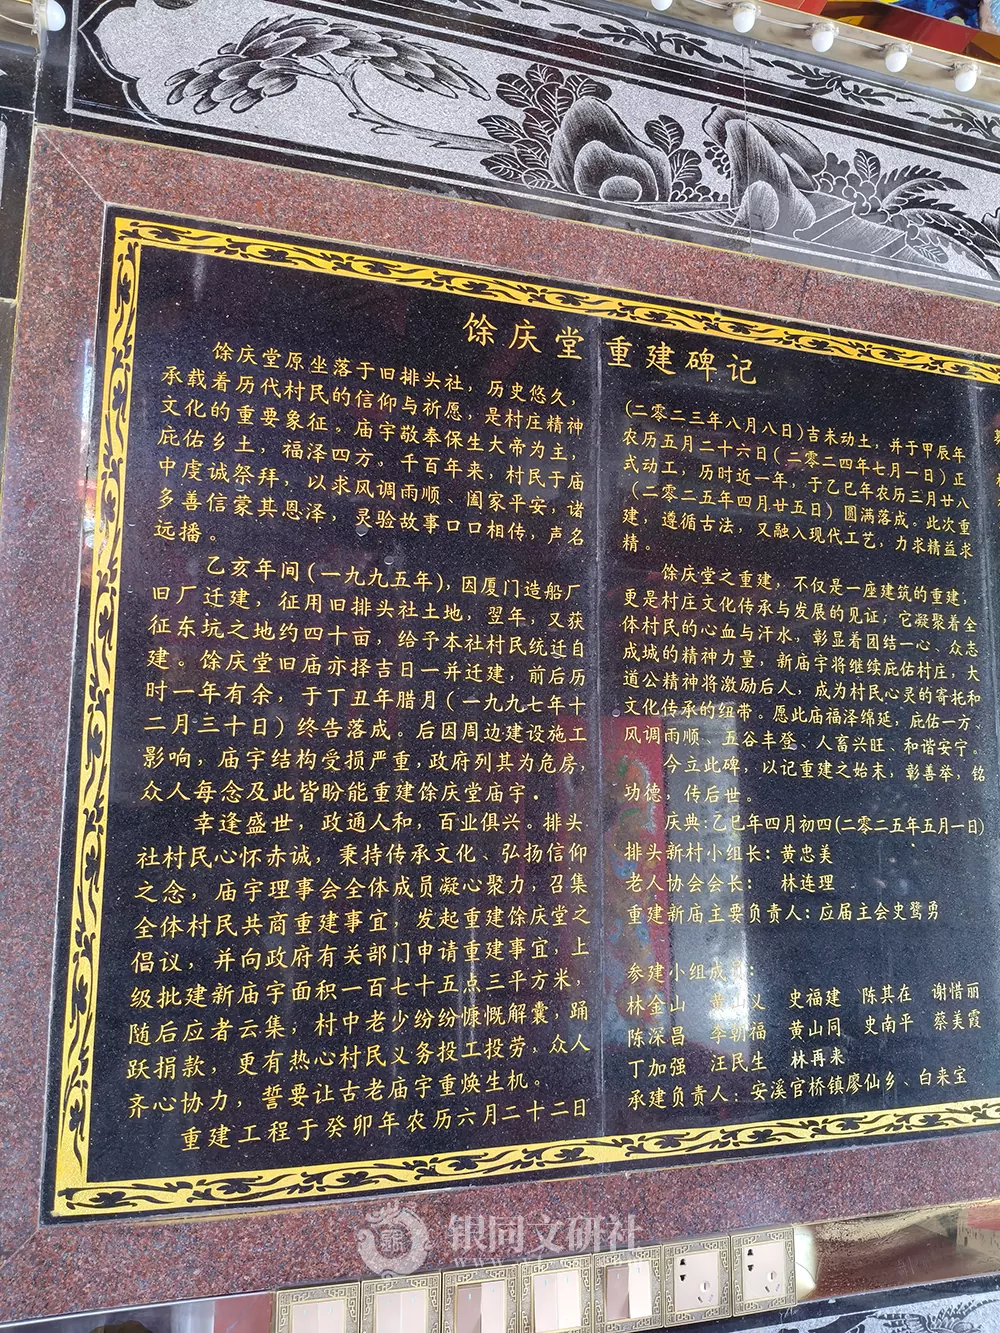 馀庆堂重建碑记
馀庆堂原坐落于旧排头社，历史悠久，
承载着历代村民的信仰与祈愿，是村庄精神
文化的重要象征。庙宇敬奉保生大帝为主，
庇佑乡土，福泽四方。千百年来，村民于庙
中虔诚祭拜，以求风调雨顺、阖家平安，诸
多善信蒙其恩泽，灵验故事口口相传，声名
远播。
乙亥年间(一九九五年)，因厦门造船厂
旧厂迁建，征用旧排头社土地，翌年，又获
征东坑之地约四十亩，给予本社村民统迁自
建。馀庆堂旧庙亦择吉日一并迁建，前后历
时一年有余，于丁丑年腊月(一九九七年十
二月三十日)终告落成。后因周边建设施工
影响，庙宇结构受损严重，政府列其为危房，
众人每念及此皆盼能重建馀庆堂庙宇.
幸逢盛世，政通人和，百业俱兴。排头
社村民心怀赤诚，秉持传承文化、弘扬信仰
之念，庙宇理事会全体成员凝心聚力，召集
全体村民共商重建事宜，发起重建馀庆堂之
倡议，并向政府有关部门申请重建事宜，上
级批建新庙宇面积一百七十五点三平方米，
随后应者云集，村中老少纷纷慷慨解囊，踊
跃捐款，更有热心村民义务投工投劳，众人
齐心协力，誓要让古老庙宇重焕生机。
重建工程于癸卯年农历六月二十二日
(二零二三年八月八日)吉未动土，并于甲辰年
农历五月二十六日(二零二四年七月一日)正
式动工，历时近一年，于乙巳年农历三月廿八
(二零二五年四月廿五日)圆满落成。此次重
建，遵循古法，又融入现代工艺，力求精益求
精。
馀庆堂之重建，不仅是一座建筑的重建，
更是村庄文化传承与发展的见证；它凝聚着全
体村民的心血与汗水，彰显着团结一心、众志
成城的精神力量，新庙宇将继续庇佑村庄，大
道公精神将激励后人，成为村民心灵的寄托和
文化传承的纽带。愿此庙福泽绵延，庇佑一方、
风调雨顺、五谷丰登、人畜兴旺、和谐安宁。
今立此碑，以记重建之始末，彰善举，铭
功德，传后世。
庆典:乙巳年四月初四(二零二五年五月一日)
排头新村小组长：黄忠美
老人协会会长： 林连理
重建新庙主要负责人：应届主会史鹭勇
参建小组成员：
林金山 黄山义 史福建 陈其在 谢惜丽
陈深昌 李朝福 黄山同 史南平 蔡美霞
丁加强 汪民生 林再来
承建负责人：安溪官桥镇廖仙乡、白来宝
银同文研社